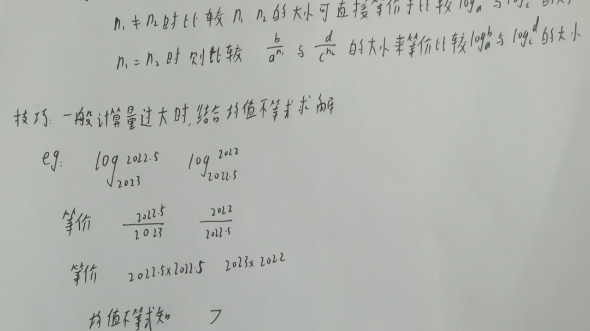 n₁ ≠ n₂ 时比较 n₁ n₂ 的大小可直接等价于比较 log_a 与 log_c 的大
n₁ = n₂ 时 则比较 b/a^n₁ 与 d/c^n₂ 的大小来等价比较 log_a^b 与 log_c^d 的大小
技巧: 一般计算量过大时,结合均值不等式求解
eg: log_2023^2022.5 log_2022.5^2022
等价 2022.5/2023 2022/2022.5
等价 2022.5×2022.5 2023×2022
均值不等式知 >